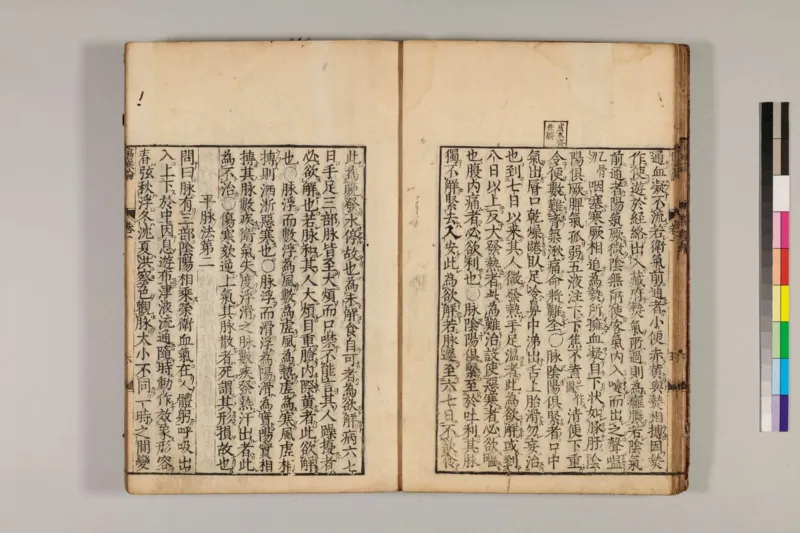 通血凝不流若衛氣前通者小便赤黄與熱相搏因熱
作使遊於經絡出入藏府熱氣所過則為癰膿若陰氣
前通者陽氣厥微陰無所使客氣内入嚏而出之聲嗢
咽塞寒厥相追為熱所擁血凝自下狀如豚肝陰
陽俱厥脾氣孤弱五液注下下焦不 清便下重
令便數難齊築湫痛命將難全〇脉陰陽俱緊者口中
氣出唇口乾燥踡臥足冷鼻中涕出舌上胎滑勿妄治
也到七日以来其人微發熱手足温者此為欲解或到
八日以上反大發熱者此為難治設使惡寒者必欲嘔
也腹内痛者必欲利也〇脉陰陽俱緊至於吐利其脉
獨不解緊去入安此為欲解若脉遲至六七日不欲食
此為晚發水停故也為未解食自可者為欲解病六七
日手足三部脉皆至大煩而口噤不能言其人躁擾者
必欲解也若脉和其人大煩目重瞼内際黄者此欲解
也〇脉浮而數浮為風數為虚風為熱虚為寒風虚相
搏則洒淅惡寒也〇脉浮而滑浮為陽滑為實陽實相
搏其脉數疾衛氣失度浮滑之脉數疾發熱汗出者此
為不治〇傷寒欬逆上氣其脉散者死謂其形損故也
平脉法第二
問曰脉有三部陰陽相乗榮衛血氣在人體躬呼吸出
入上下於中因息遊布津液流通隨時動作效象形容
春弦秋浮冬沈夏洪察色觀脉大小不同一時之間變